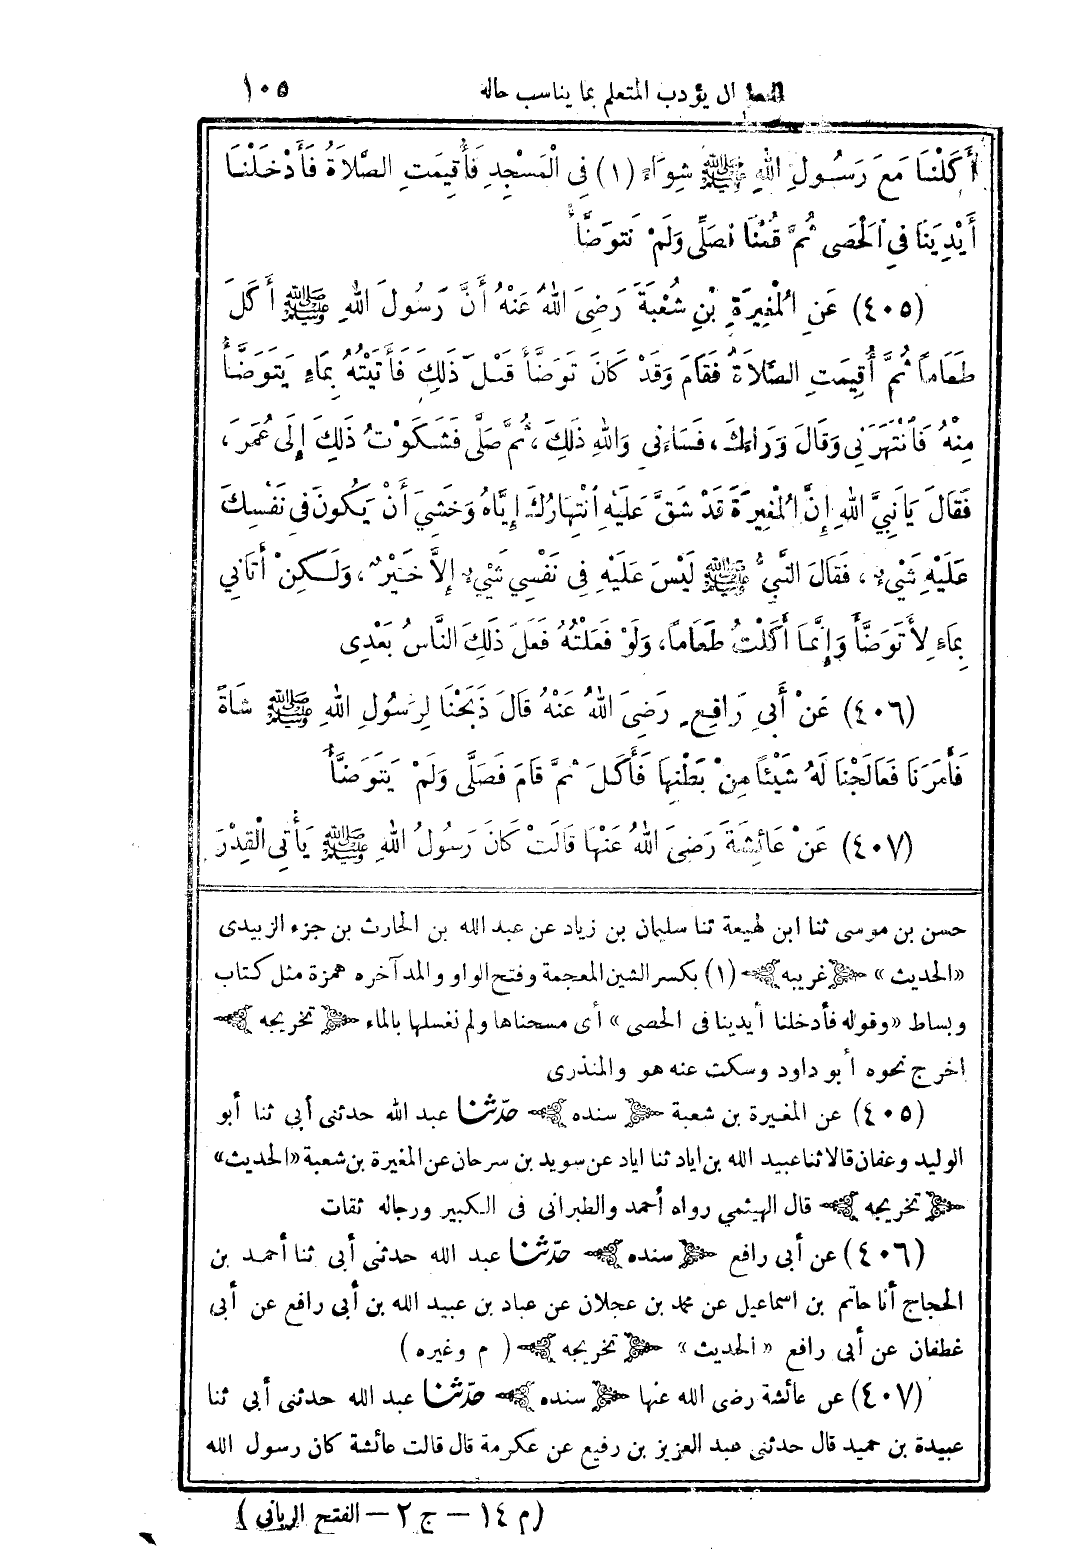 ال يؤدب المتعلم بما يناسب حاله ١٠٥
أَكَلْنَا مَعَ رَسُولِ اللهِ ﷺ شِوَاءً (١) فِي الْمَسْجِدِ فَأُقِيمَتِ الصَّلَاةُ فَأَدْخَلْنَا
أَيْدِيَنَا فِي الْحَصَى ثُمَّ قُمْنَا نُصَلِّي وَلَمْ نَتَوَضَّأْ
(٤٠٥) عَنِ الْمُغِيرَةِ بْنِ شُعْبَةَ رَضِيَ اللهُ عَنْهُ أَنَّ رَسُولَ اللهِ ﷺ أَكَلَ
طَعَاماً ثُمَّ أُقِيمَتِ الصَّلَاةُ فَقَامَ وَقَدْ كَانَ تَوَضَّأَ قَبْلَ ذَلِكَ فَأَتَيْتُهُ بِمَاءٍ يَتَوَضَّأُ
مِنْهُ فَانْتَهَرَنِي وَقَالَ وَرَاءَكَ، فَسَاءَنِي وَاللهِ ذَلِكَ، ثُمَّ صَلَّى فَشَكَوْتُ ذَلِكَ إِلَى عُمَرَ،
فَقَالَ يَا نَبِيَّ اللهِ إِنَّ الْمُغِيرَةَ قَدْ شَقَّ عَلَيْهِ انْتِهَارُكَ إِيَّاهُ وَخَشِيَ أَنْ يَكُونَ فِي نَفْسِكَ
عَلَيْهِ شَيْءٌ، فَقَالَ النَّبِيُّ ﷺ لَيْسَ عَلَيْهِ فِي نَفْسِي شَيْءٌ إِلَّا خَيْرٌ، وَلَكِنْ أَتَانِي
بِمَاءٍ لِأَتَوَضَّأَ وَإِنَّمَا أَكَلْتُ طَعَاماً، وَلَوْ فَعَلْتُهُ فَعَلَ ذَلِكَ النَّاسُ بَعْدِي
(٤٠٦) عَنْ أَبِي رَافِعٍ رَضِيَ اللهُ عَنْهُ قَالَ ذَبَحْنَا لِرَسُولِ اللهِ ﷺ شَاةً
فَأَمَرَنَا فَعَالَجْنَا لَهُ شَيْئاً مِنْ بَطْنِهَا فَأَكَلَ ثُمَّ قَامَ فَصَلَّى وَلَمْ يَتَوَضَّأْ
(٤٠٧) عَنْ عَائِشَةَ رَضِيَ اللهُ عَنْهَا قَالَتْ كَانَ رَسُولُ اللهِ ﷺ يَأْتِي الْقِدْرَ
حسن بن موسى ثنا ابن لهيعة ثنا سليمان بن زياد عن عبد الله بن الحارث بن جزء الزبيدى
«الحديث» غريبه (١) بكسر الشين المعجمة وفتح الواو والمد آخره همزة مثل كتاب
وبساط «وقوله فأدخلنا أيدينا فى الحصى» أى مسحناها ولم نغسلها بالماء تخريجه
اخرج نحوه أبو داود وسكت عنه هو والمنذرى
(٤٠٥) عن المغيرة بن شعبة سنده حدّثنا عبد الله حدثنى أبي ثنا أبو
الوليد وعفان قالا ثنا عبيد الله بن اياد ثنا اياد عن سويد بن سرحان عن المغيرة بن شعبة «الحديث»
تخريجه قال الهيثمي رواه أحمد والطبرانى فى الكبير ورجاله ثقات
(٤٠٦) عن أبى رافع سنده حدّثنا عبد الله حدثنى أبى ثنا أحمد بن
الحجاج أنا حاتم بن اسماعيل عن محمد بن عجلان عن عباد بن عبيد الله بن أبى رافع عن أبى
غطفان عن أبى رافع «الحديث» تخريجه (م وغيره)
(٤٠٧) عن عائشة رضى الله عنها سنده حدّثنا عبد الله حدثنى أبى ثنا
عبيدة بن حميد قال حدثنى عبد العزيز بن رفيع عن عكرمة قال قالت عائشة كان رسول الله
(م ١٤ – ج ٢ – الفتح الربانى)